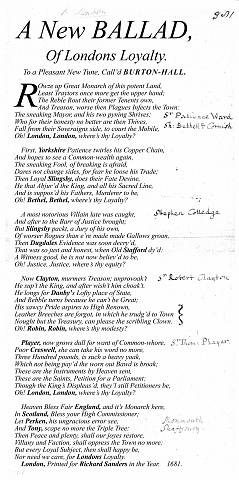 A New BALLAD,
Of Londons Loyalty.
To a Pleasant New Tune. Call'd BURTON-HALL.
ROuze up Great Monarch of this potent Land,
Least Traytors once more get the upper hand;
The Reble Rout their former Tenents own,
And Treason, worse then Plagues Infects the Town:
The sneaking Mayor, and his two pyning Shrives:
Who for their honesty no better are then Thives,
Fall from their Soveraigns side, to court the Mobile,
Oh! London, London, where's thy Loyalty?
Sr Patience Ward
Sr. Bethell & Cornish
First, Yorkshire Patience twirles his Copper Chain,
And hopes to see a Common-wealth again.
The sneaking Fool, of breaking is afraid,
Dares not change sides, for fear he loose his Trade;
Then Loyal Slingsby, does their Fate Devine,
He that Abjur'd the King, and all his Sacred Line,
And is suppos'd his Fathers, Murderer to be,
Oh! Bethel, Bethel, where's thy Loyalty?
A most notorious Villain late was caught,
And after to the Barr of Justice brought;
But Slingsby packt, a Jury of his own,
Of worser Rogues than e'er made made Gallows groan.
Then Dugdales Evidence was soon decry'd,
That was so just and honest, when Old Stafford dy'd:
A Witness good, he is not now believ'd to be,
Oh! Justice, Justice, where's thy equity?
Stephen Colledge
Now Clayton, murmers Treason; unprovok't
He sap't the King, and after wish'd him choak't.
He longs for Danby's Lofty place of State,
And Rebble turns because he can't be Great;
His sawcy Pride aspires to High Renown,
Leather Breeches are forgot, in which he trudg'd to Town
Nought but the Treasury, can please the scribling Clown.
Oh! Robin, Robin, where's thy modesty?
Sr Robert Clayton
Player, now grows dull for want of Common-whore.
Poor Creswell, she can take his word no more,
Three Hundred pounds, is such a heavy pack,
Which not being pay'd the worn out Bawd is break:
These are the Instruments by Heaven sent.
These are the Saints, Petition for a Parliament;
Though the King's Displeas'd, they'l still Petitioners be,
Oh! London, London, where's thy Loyalty?
Sr Thom: Player
Heaven Bless Fair England, and it's Monarch here,
In Scotland, Bless your High Commissioner;
Let Perken, his ungracious error see,
And Tony, scape no more the Triple Tree:
Then Peace and plenty, shall our Joyes restore,
Villany and Faction, shall oppress the Town no more:
But every Loyal Subject, then shall happy be,
Nor need we care, for Londons Loyalty.
Monmouth
Shaftsbury
London, Printed for Richard Sanders in the Year. 1681.